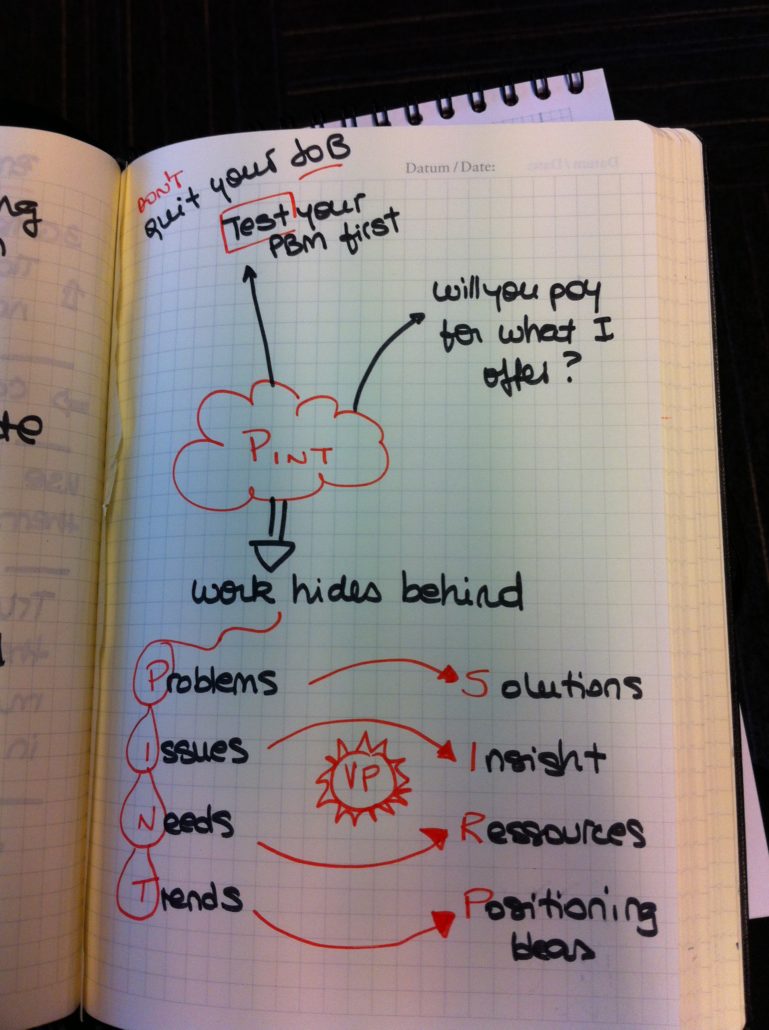 Datum / Date:
DON'T
quit your JOB
Test your
PBM first
will you pay
for what I
offer?
PINT
work hides behind
Problems Solutions
Issues Insight
VP
Needs Ressources
Trends Positioning
Ideas
ng
te